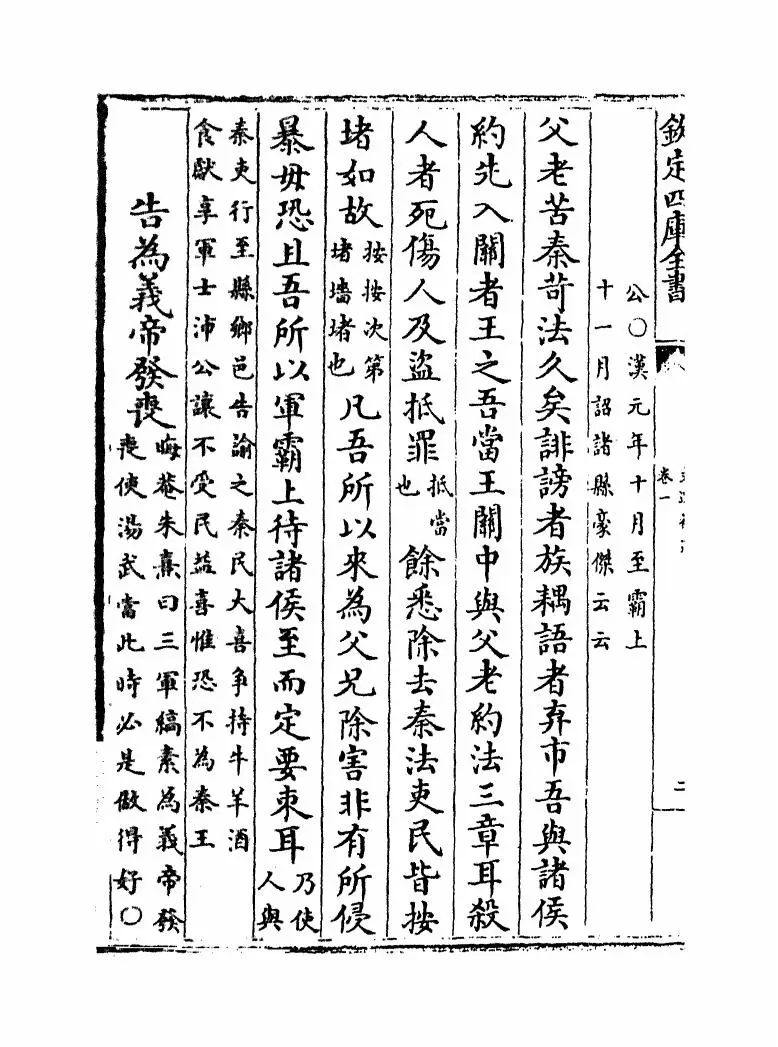 欽定四庫全書
卷一
二
公〇漢元年十月至霸上
十一月詔諸縣豪傑云云
父老苦秦苛法久矣誹謗者族耦語者弃市吾與諸侯
約先入關者王之吾當王關中與父老約法三章耳殺
人者死傷人及盜抵罪抵當也餘悉除去秦法吏民皆按
堵如故按按次第堵墻堵也凡吾所以來為父兄除害非有所侵
暴毋恐且吾所以軍霸上待諸侯至而定要束耳乃使人與
秦吏行至縣鄉邑告諭之秦民大喜爭持牛羊酒
食獻享軍士沛公讓不受民益喜惟恐不為秦王
告為義帝發喪晦菴朱熹曰三軍縞素為義帝發
喪使湯武當此時必是做得好〇